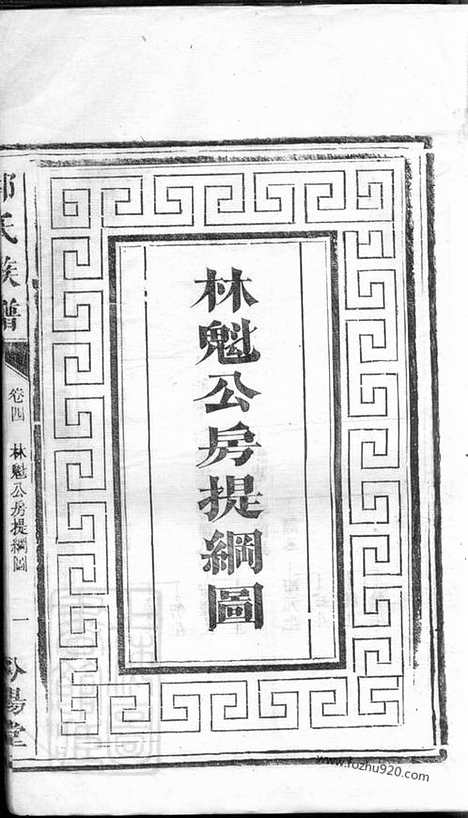 林魁公房提綱圖
郭氏族譜
卷四 林魁公房提綱圖 一
汾陽堂
www.fozhu920.com